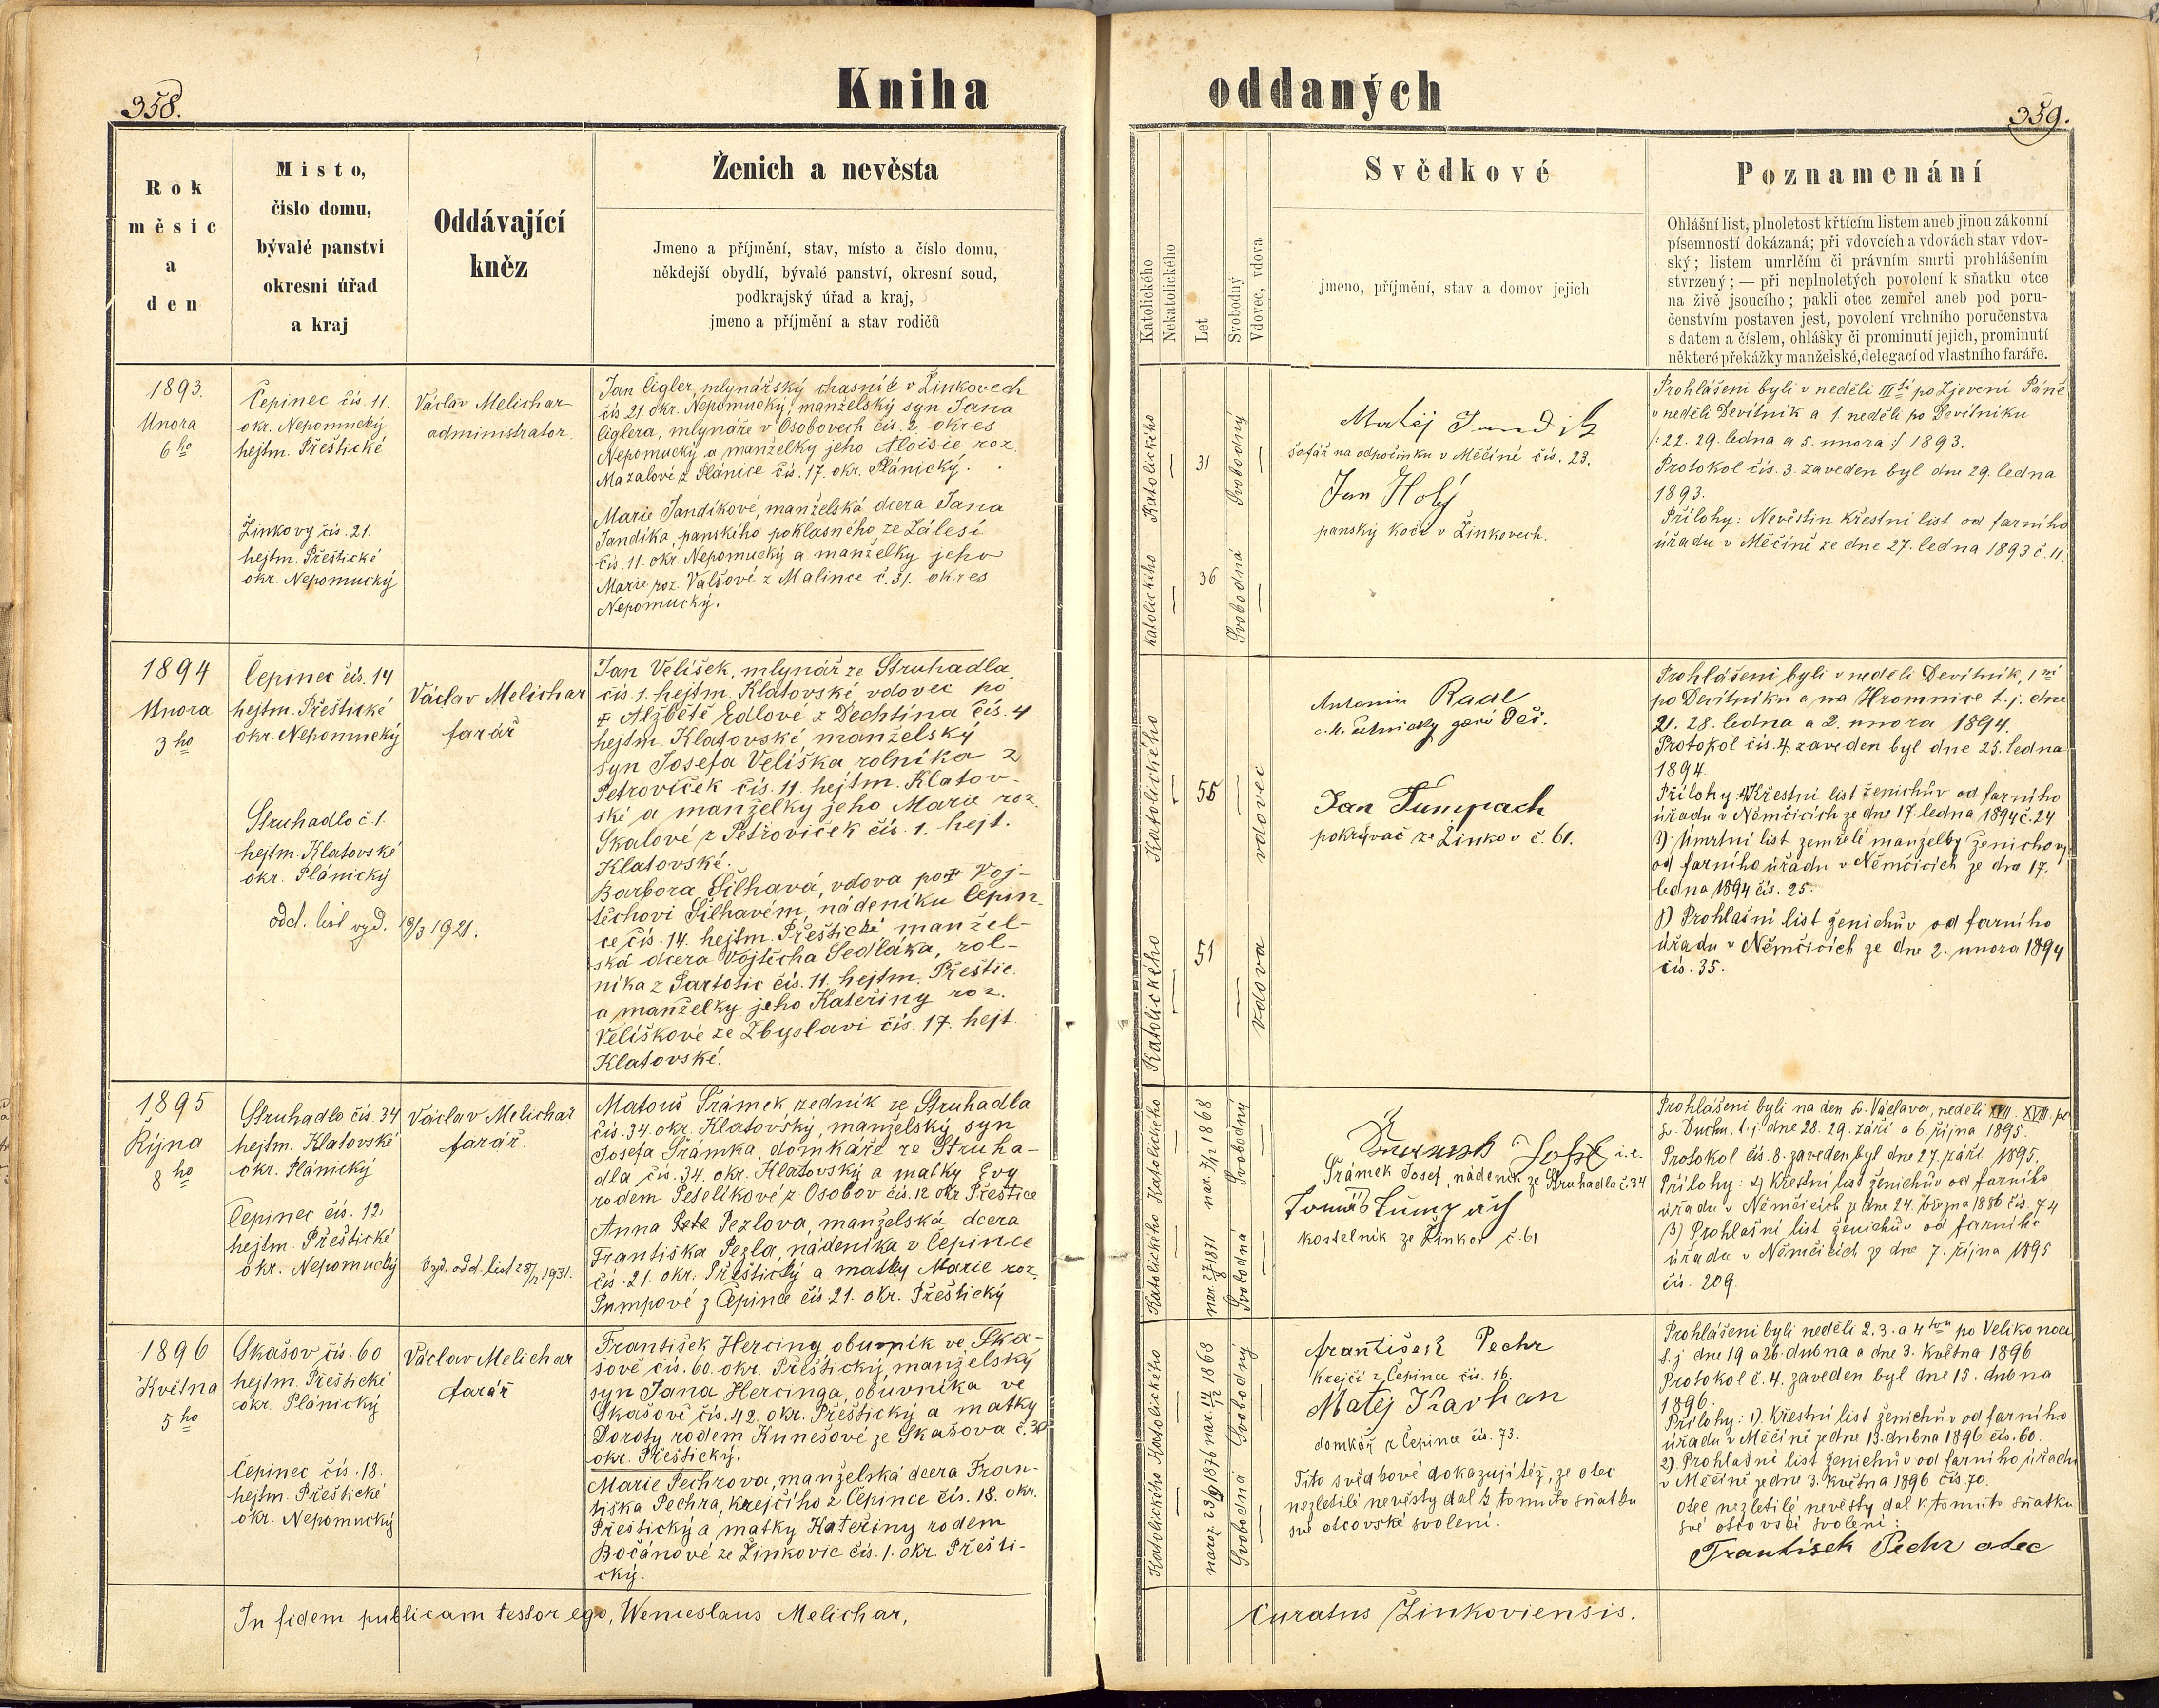 358.
Kniha
Rok
měsic
a
den
Misto,
čislo domu,
bývalé panstvi
okresni úřad
a kraj
Oddávající
kněz
Ženich a nevěsta
Jmeno a příjmění, stav, místo a číslo domu,
někdejší obydlí, bývalé panství, okresní soud,
podkrajský úřad a kraj,
jmeno a příjmění a stav rodičů
1893.
Února
6 ho
Čepinec čís. 11.
okr. Nepomucký
hejtm. Přeštické
Žinkovy čís. 21.
hejtm. Přeštické
okr. Nepomucký
Václav Melichar
administrator.
Jan Cigler, mlynářský chasník v Žinkovech
čís 21 okr. Nepomucký, manželský syn Jana
Ciglera, mlynáře v Osobovech čís. 2. okres
Nepomucký a manželky jeho Aloisie roz.
Mazalové z Plánice čís. 17. okr. Plánický.
Marie Jandíkové, manželská dcera Jana
Jandíka, panského poklasného ze Zálesí
čís. 11. okr. Nepomucký a manželky jeho
Marie roz. Valšové z Malince č. 31. okres
Nepomucký.
1894
Února
3 ho
Čepinec čís. 14
hejtm. Přeštické
okr. Nepomucký
Struhadlo č. 1.
hejtm. Klatovské
okr. Plánický
odd. list vyd. 19/3 1921.
Václav Melichar
farář
Jan Velíšek, mlynář ze Struhadla,
čís. 1. hejtm. Klatovské, vdovec po
‡ Alžbětě Edlové z Dechtína čís. 4
hejtm. Klatovské manželský
syn Josefa Velíška rolníka z
Petrovíček čís. 11. hejtm. Klatov-
ské a manželky jeho Marie roz.
Skalové z Petroviček čís. 1. hejt.
Klatovské.
Barbora Šilhavá, vdova po ‡ Voj-
těchovi Šilhavém, nádeníku Čepin-
ce čís. 14. hejtm. Přeštické, manžel-
ská dcera Vojtěcha Sedláka, rol-
níka z Partotic čís. 11. hejtm. Přeštic.
a manželky jeho Kateřiny roz.
Velíškové ze Zbyslavi čís. 17. hejt.
Klatovské.
1895
Října
8 ho
Struhadlo čís. 34
hejtm. Klatovské
okr. Plánický
Čepinec čís. 12.
hejtm. Přeštické
okr. Nepomucký
Václav Melichar
farář.
Vyd. odd. list 1931.
Matouš Šrámek, zedník ze Struhadla
čís. 34. okr. Klatovský, manželský syn
Josefa Šrámka, domkáře ze Struha-
dla čís. 34. okr. Klatovský a matky Evy
rodem Peselíkové z Osobov čís. 12 okr Přeštice
Anna Pezlova, manželská dcera
Františka Pezla, nádeníka z Čepince
čís. 21. okr. Přeštický a matky Marie roz.
Pumpové z Čepince čís 21. okr. Přeštický
1896
Května
5 ho
Skašov čís. 60
hejtm. Přeštické
okr. Plánický
Čepinec čís. 18.
hejtm. Přeštické
okr. Nepomucký
Václav Melichar
farář
František Hercing, obuvník ve Ska-
šově čís. 60. okr. Přeštický, manželský
syn Jana Hercinga, obuvníka ve
Skašově čís. 42. okr. Přeštický a matky
Doroty rodem Kunešové ze Skašova č. 30
okr. Přeštický.
Marie Pechrova, manželská dcera Fran-
tiška Pechra, krejčího z Čepince čís. 18. okr.
Přeštický a matky Kateřiny rodem
Bočánové ze Žinkovic čís. 1. okr. Přešti-
cký.
In fidem publicam testor ego, Wenceslaus Melichar,
oddaných
359.
Katolického
Nekatolického
Let
Svobodný
Vdovec, vdova
Svědkové
jmeno, příjmění, stav a domov jejich
Poznamenání
Ohlášní list, plnoletost křtícím listem aneb jinou zákonní
písemností dokázaná; při vdovcích a vdovách stav vdov-
ský; listem umrlčím či právním smrti prohlášením
stvrzený; — při neplnoletých povolení k sňatku otce
na živě jsoucího; pakli otec zemřel aneb pod poru-
čenstvím postaven jest, povolení vrchního poručenstva
s datem a číslem, ohlášky či prominutí jejich, prominutí
některé překážky manželské, delegací od vlastního faráře.
Katolického
31
Svobodný
katolického
36
Svobodná
Matěj Jandik
šafář na odpočinku v Měčíně čís. 23.
Jan Holý
panský kočí v Žinkovech.
Prohlášeni byli v neděli III tí po Zjevení Páně
v neděli Devítník a 1. neděli po Devítniku
/: 22. 29. ledna a 5. února :/ 1893.
Protokol čís. 3. zaveden byl dne 29. ledna
1893.
Přílohy: Nevěstin křestní list od farního
úřadu v Měčíně ze dne 27. ledna 1893 č. 11.
Katolického
55
vdovec
Katolického
51
vdova
Antonin Radl
Jan Tumpach
pokrývač ze Žinkov č. 61.
Prohlášeni byli v neděli Devítník, 1 ní
po Devítníku a na Hromnice t. j. dne
21. 28. ledna a 2. února 1894.
Protokol čís. 4. zaveden byl dne 25. ledna
1894.
Přílohy: Křestní list ženichův od farního
úřadu v Němčicích ze dne 17. ledna 1894 č. 24
Umrtní list zemřelé manželky ženichovy
od farního úřadu v Němčicích ze dne 17.
ledna 1894 čís. 25.
Prohlašní list ženichův od farního
úřadu v Němčicích ze dne 2. února 1894
čís. 35.
Katolického
nar. 7/12 1868
Svobodný
Katolického
nar. 27/8 1871
Svobodná
Šrámek Josef i. e.
Šrámek Josef, nádeník ze Struhadla č. 34
Tomáš Tumpach
kostelník ze Žinkov č. 61
Prohlášeni byli na den Sv. Václava, neděli XVII. XVIII. po
Sv. Duchu, t. j. dne 28. 29. září a 6. října 1895.
Protokol čís. 8. zaveden byl dne 27. září 1895.
Přílohy: Křestní list ženichův od farního
úřadu v Němčicích ze dne 24. března 1886 čís. 74
Prohlašní list ženichův od farního
úřadu v Němčicích ze dne 7. října 1895
čís. 209.
Katolického
nar. 14/12 1868
Svobodný
Katolického
naroz. 23/9 1876
Svobodná
František Pechr
Krejčí z Čepince čís. 16.
Matěj
domkář z Čepince čís. 73.
Tito svědkové dokazují též, že otec
nezletilé nevěsty dal k tomuto sňatku
své otcovské svolení.
Prohlášeni byli neděli 2. 3. a 4 tou po Velikonoci
t. j. dne 19 a 26. dubna a dne 3. května 1896
Protokol č. 4. zaveden byl dne 15. dubna
1896.
Přílohy: 1). Křestní list ženichův od farního
úřadu v Měčíně ze dne 13. dubna 1896 čís. 60.
2). Prohlašní list ženichův od farního úřadu
v Měčíně ze dne 3. května 1896 čís 70.
Otec nezletilé nevěsty dal k tomuto sňatku
své otcovské svolení:
František Pechr otec
Curatus Žinkoviensis.